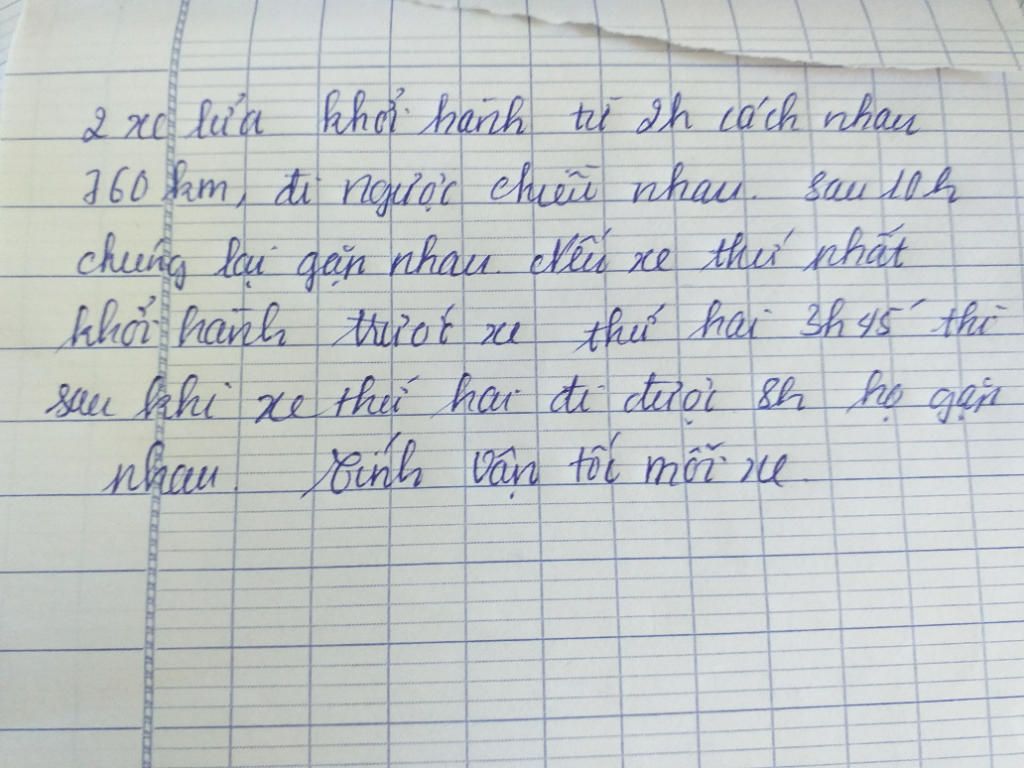 2 xe lửa khởi hành từ 2h cách nhau
760 km, đi ngược chiều nhau. sau 10h
chúng lại gặp nhau. Nếu xe thứ nhất
khởi hành trước xe thứ hai 3h45' thì
sau khi xe thứ hai đi được 8h họ gặp
nhau. Tính vận tốc mỗi xe.